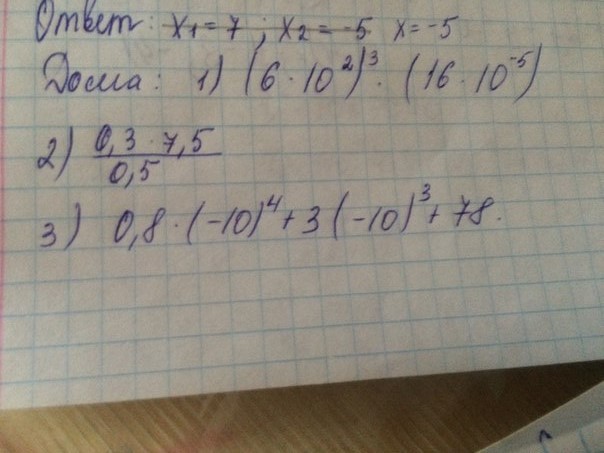 Ответ: x₁ = 7 ; x₂ = -5 x = -5
Дома: 1) (6 · 10²)³ · (16 · 10⁻⁵)
2) 0,3 · 7,5
0,5
3) 0,8 · (-10)⁴ + 3 (-10)³ + 78.